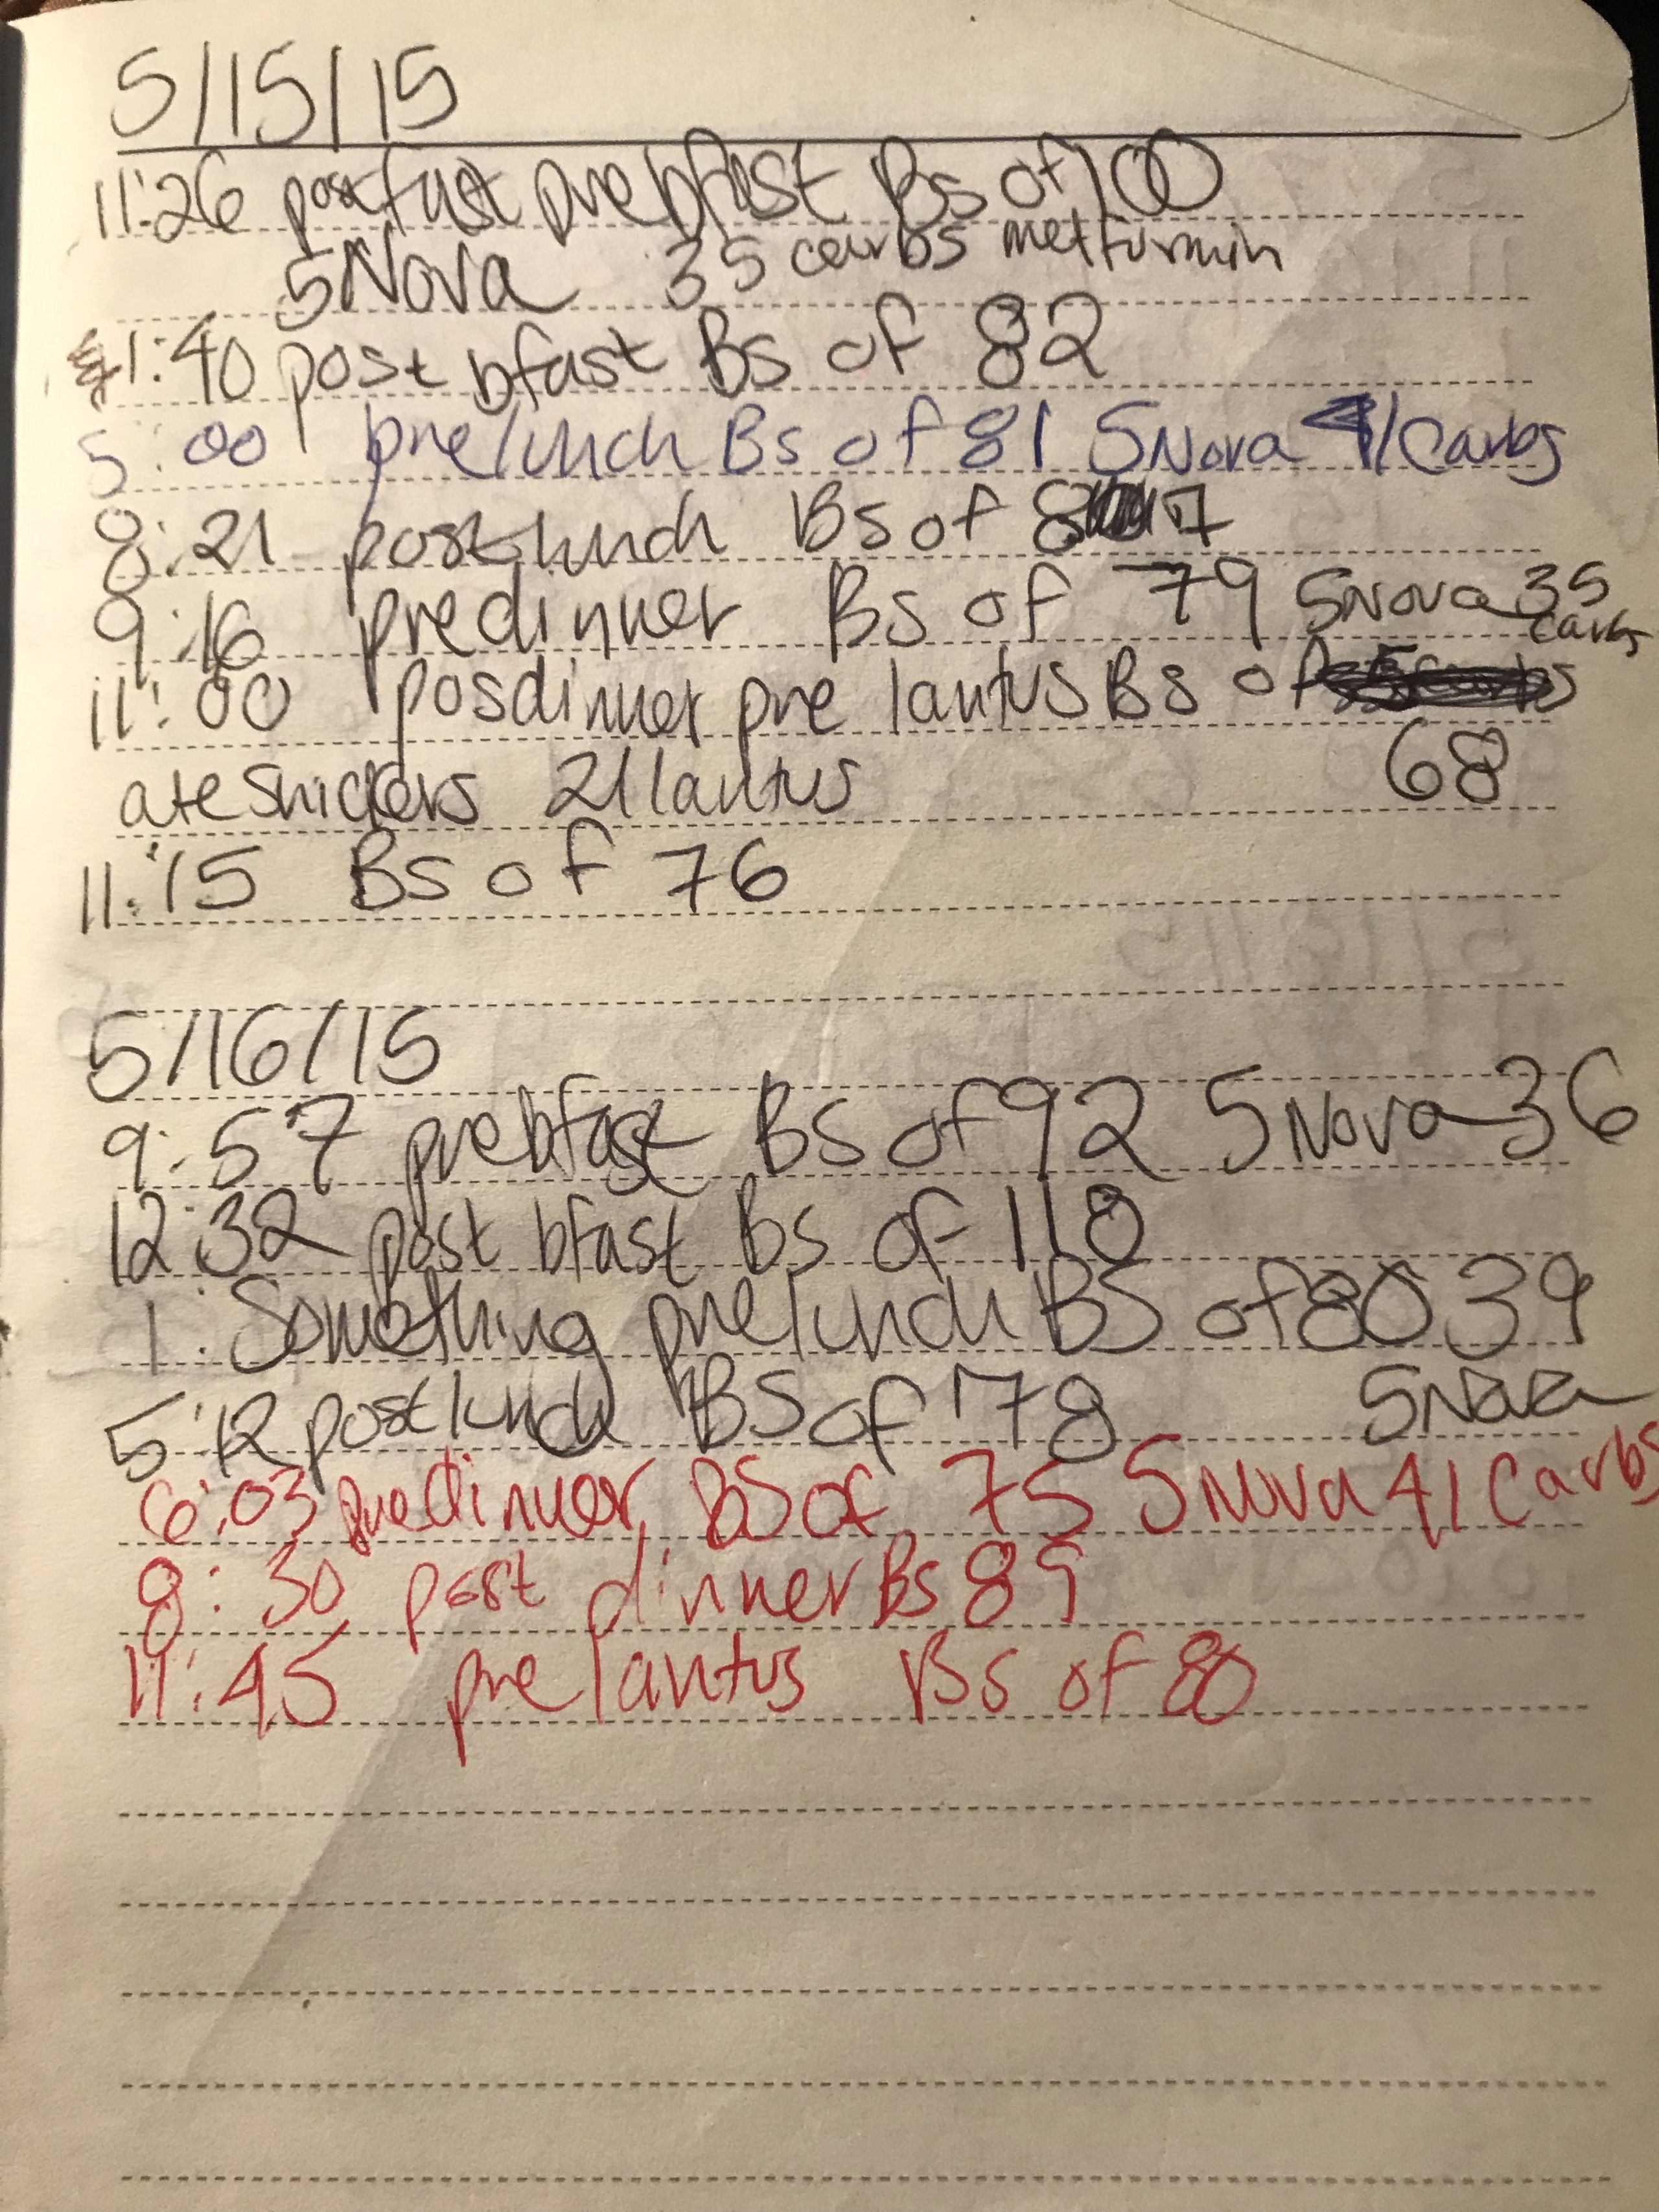 5/15/15
11:26 post fast pre bfast Bs of 100
5 Nova 35 carbs metformin
1:40 post bfast Bs of 82
5:00 prelunch Bs of 81 5 Nova 41 Carbs
8:21 post lunch Bs of 87
9:16 predinner Bs of 79 5 Nova 35 carbs
11:00 posdinner pre lantus Bs of
ate snickers 21 lantus 68
11:15 Bs of 76
5/16/15
9:57 prebfast Bs of 92 5 Nova 36
12:32 post bfast Bs of 110
1:Something prelunch BS of 80 39
5:12 postlunch BS of 78 5 Nova
6:03 predinner BS of 75 5 Nova 41 Carbs
8:30 post dinner Bs 89
11:45 pre lantus Bs of 80